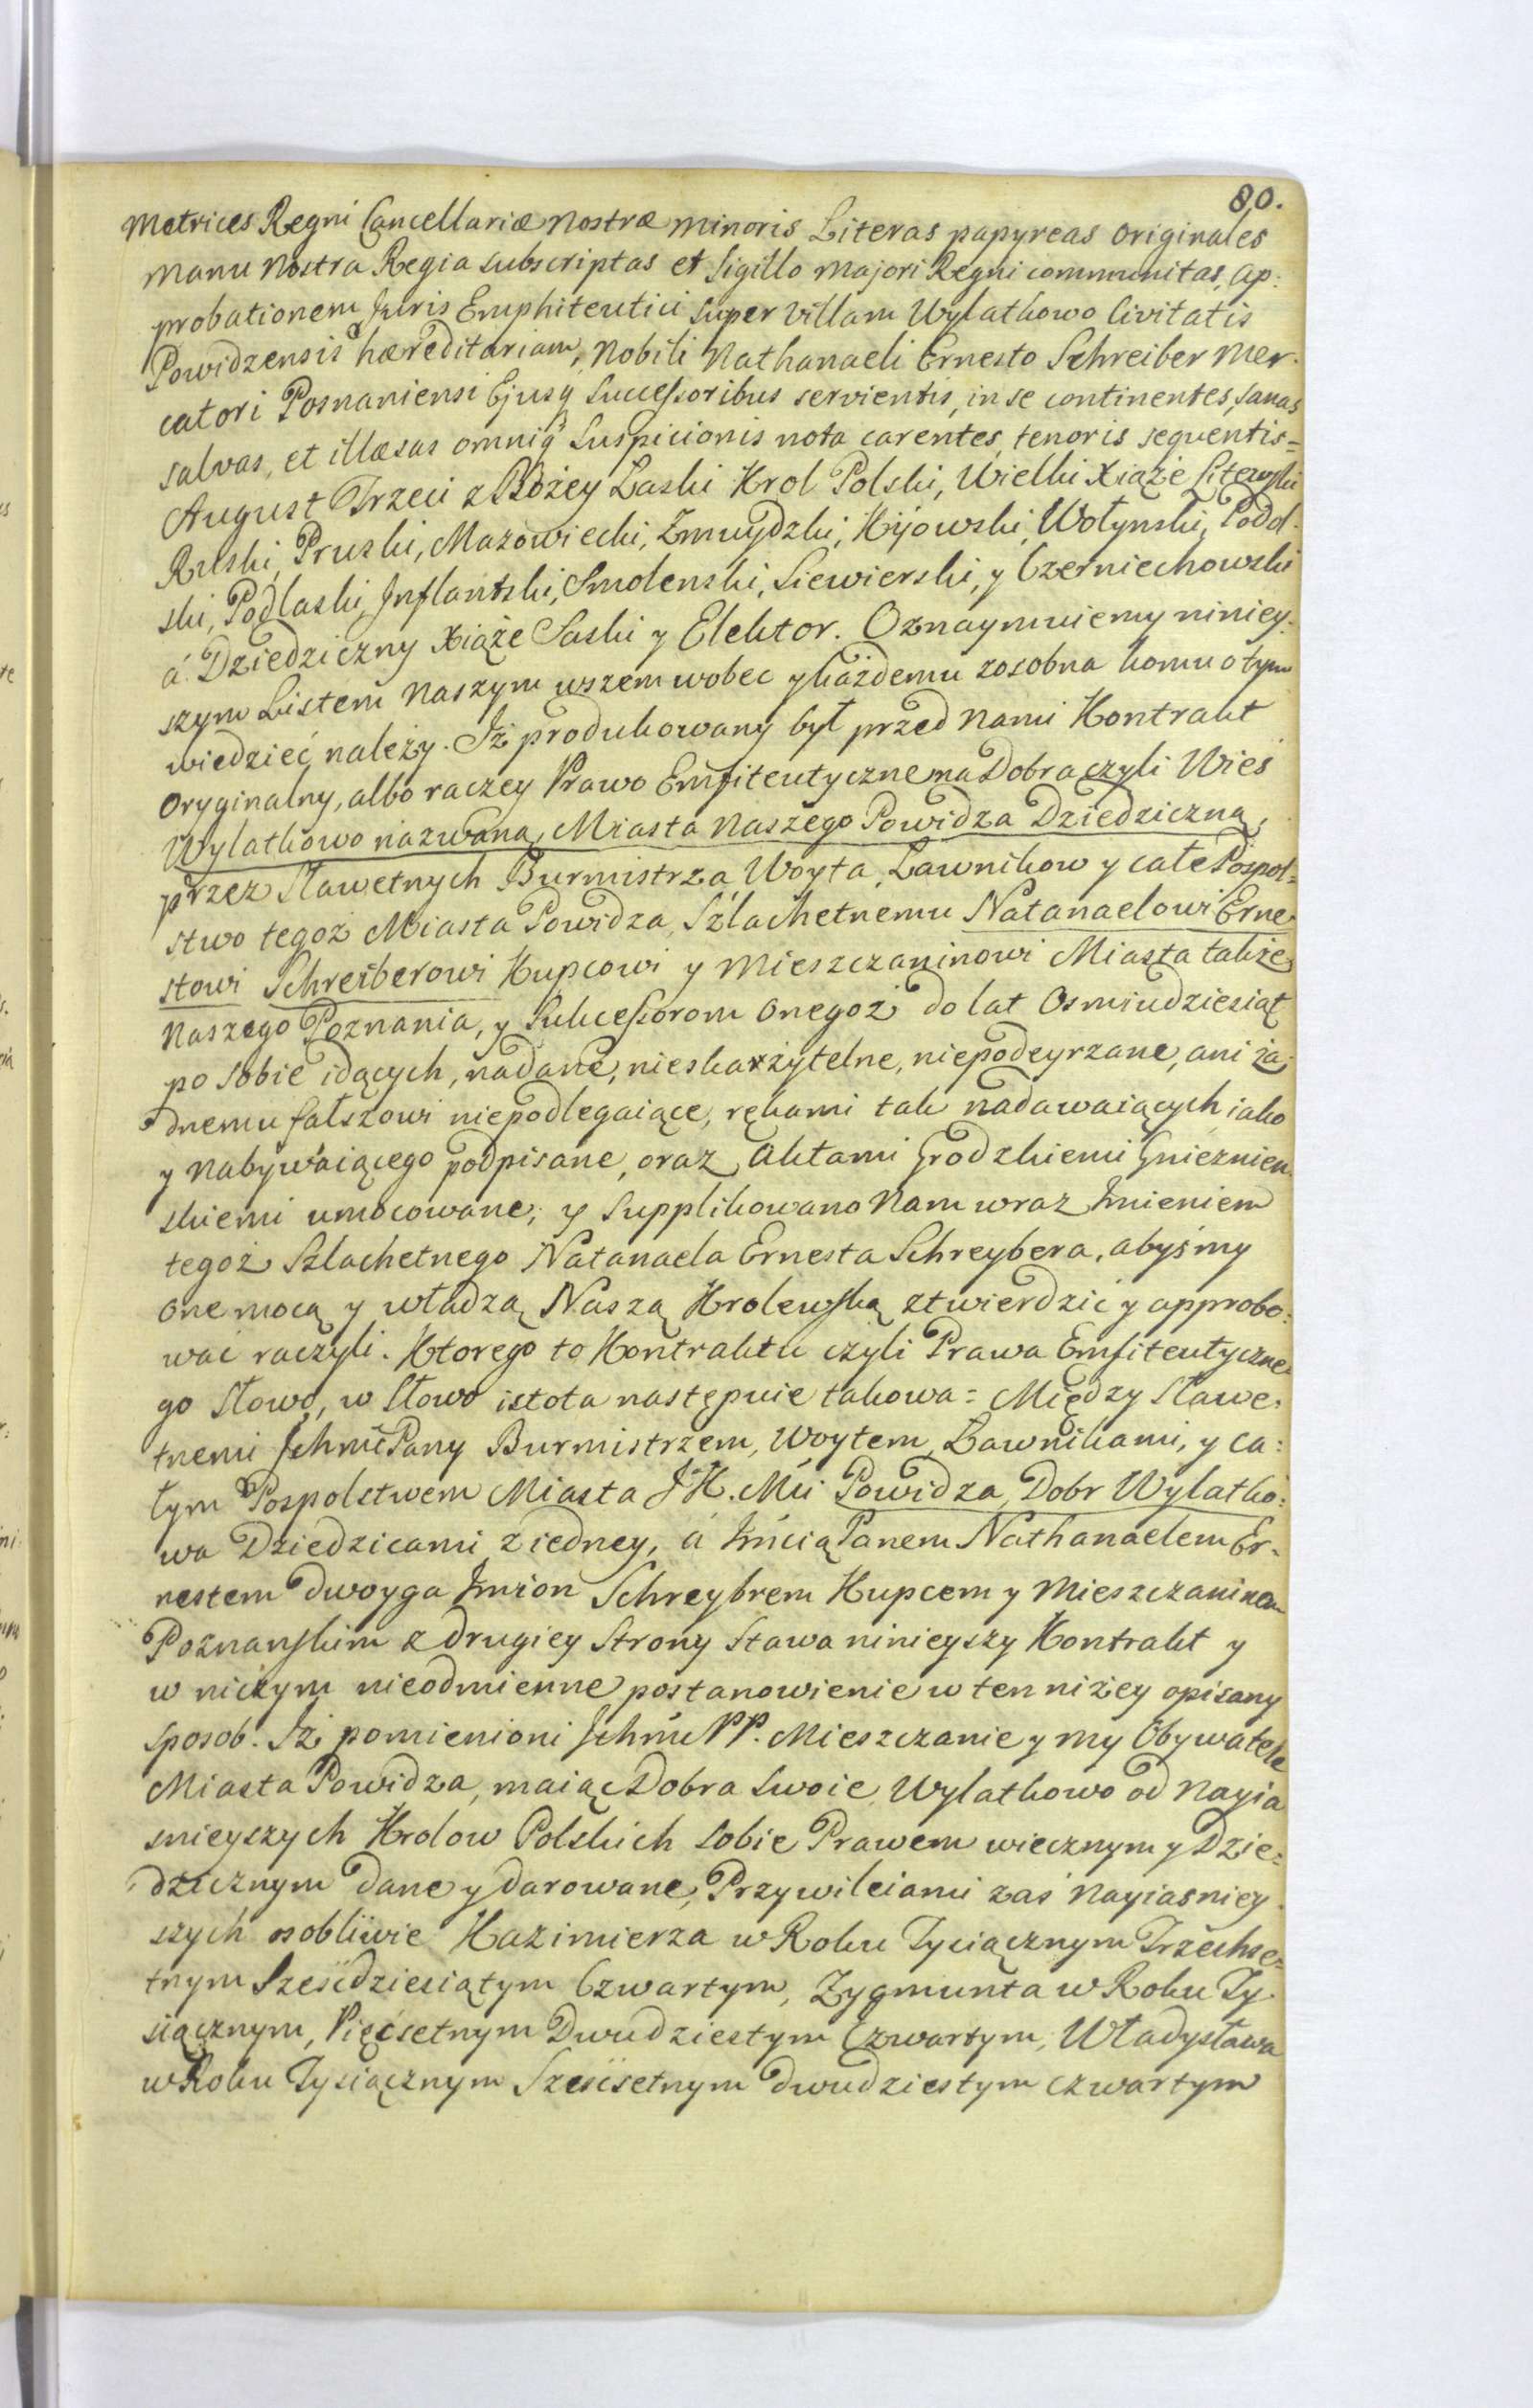 80.
Metrices Regni Cancellariæ nostræ minoris Literas papyreas originales
manu nostra Regia subscriptas et Sigillo majori Regni communitas, ap:
probationem Juris Emphiteutici super Villam Wylatkowo Civitatis
Powidzensis hæreditariam, Nobili Nathanaeli Ernesto Schreiber Mer-
catori Posnaniensi Ejusq Successoribus servientis, in se continentes, sanas
salvas, et illæsas omniq Suspicionis nota carentes, tenoris sequentis =
August Trzeci z Bożey Laski Krol Polski, Wielki Xiąże Litewski
Ruski, Pruski, Mazowiecki, Zmuydzki, Kijowski, Wołynski, Podol-
ski, Podlaski, Inflantski, Smolenski, Siewierski, y Czerniechowski
á Dziedziczny Xiąże Saski y Elektor. Oznaymuiemy niniey:
szym Listem Naszym wszem wobec y każdemu zosobna komu o tym
wiedzieć należy. Iż produkowany był przed Nami Kontrakt
Oryginalny, albo raczey Prawo Emfiteutyczne na Dobra czyli Wieś
Wylatkowo nazwaną, Miasta Naszego Powidza Dziedziczną,
przez Sławetnych Burmistrza, Woyta, Ławnikow y całe Pospol=
stwo tegoż Miasta Powidza, Szlachetnemu Natanaelowi Erne
stowi Schreiberowi Kupcowi y Mieszczaninowi Miasta także
Naszego Poznania, y Sukcessorom onegoż do lat Osmiudziesiąt
po sobie idących, nadane, nieskażytelne, niepodeyrzane, ani ża:
dnemu fałszowi niepodlegaiące, rękami tak nadawaiących iako
y nabywaiącego podpisane, oraz Aktami Grodzkiemi Gnieznien
skiemi umocowane; y Supplikowano Nam wraz Imieniem
tegoż Szlachetnego Natanaela Ernesta Schreybera, abyśmy
one mocą y władzą Naszą Krolewską ztwierdzić y approbo:
wać raczyli. Ktorego to Kontraktu czyli Prawa Emfiteutyczne
go Słowo, w Słowo istota następuie takowa = Między Sławe:
tnemi Ichmć Pany Burmistrzem, Woytem, Ławnikami, y ca:
łym Pospolstwem Miasta J K. Mci Powidza, Dobr Wylatko:
wa Dziedzicami z iedney, á Imcią Panem Nathanaelem Er-
nestem dwoyga Imion Schreybrem Kupcem y Mieszczaninem
Poznanskim z drugiey Strony stawa ninieyszy Kontrakt y
w niczym nieodmienne postanowienie w ten niżey opisany
sposob. Iż pomienioni Ichmć PP. Mieszczanie y my Obywatele
Miasta Powidza, maiąc Dobra Swoie Wylatkowo od Nayia
snieyszych Krolow Polskich sobie Prawem wiecznym y Dzie=
dzicznym dane y darowane, Przywileiami zaś Nayiasniey
szych osobliwie Kazimierza w Roku Tysiącznym Trzechse=
tnym Sześćdziesiątym Czwartym, Zygmunta w Roku Ty
siącznym, Pięćsetnym Dwudziestym Czwartym, Władysława
w Roku Tysiącznym Sześćsetnym dwudziestym czwartym